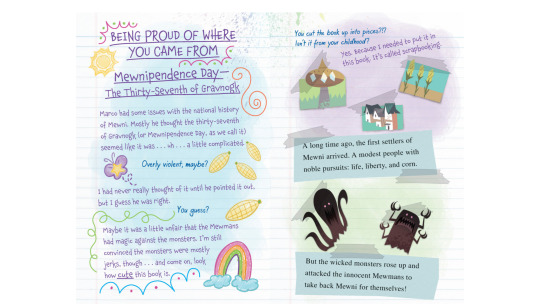 BEING PROUD OF WHERE
YOU CAME FROM
Mewnipendence Day—
The Thirty-Seventh of Gravnogk
Marco had some issues with the national history
of Mewni. Mostly he thought the thirty-seventh
of Gravnogk (or Mewnipendence Day, as we call it)
seemed like it was . . . uh . . . a little complicated.
Overly violent, maybe?
I had never really thought of it until he pointed it out,
but I guess he was right.
You guess?
Maybe it was a little unfair that the Mewmans
had magic against the monsters. I'm still
convinced the monsters were mostly
jerks, though . . . and come on, look
how cute this book is.
You cut the book up into pieces?!?
Isn't it from your childhood?
Yes, because I needed to put it in
this book. It's called scrapbooking.
A long time ago, the first settlers of
Mewni arrived. A modest people with
noble pursuits: life, liberty, and corn.
But the wicked monsters rose up and
attacked the innocent Mewmans to
take back Mewni for themselves!